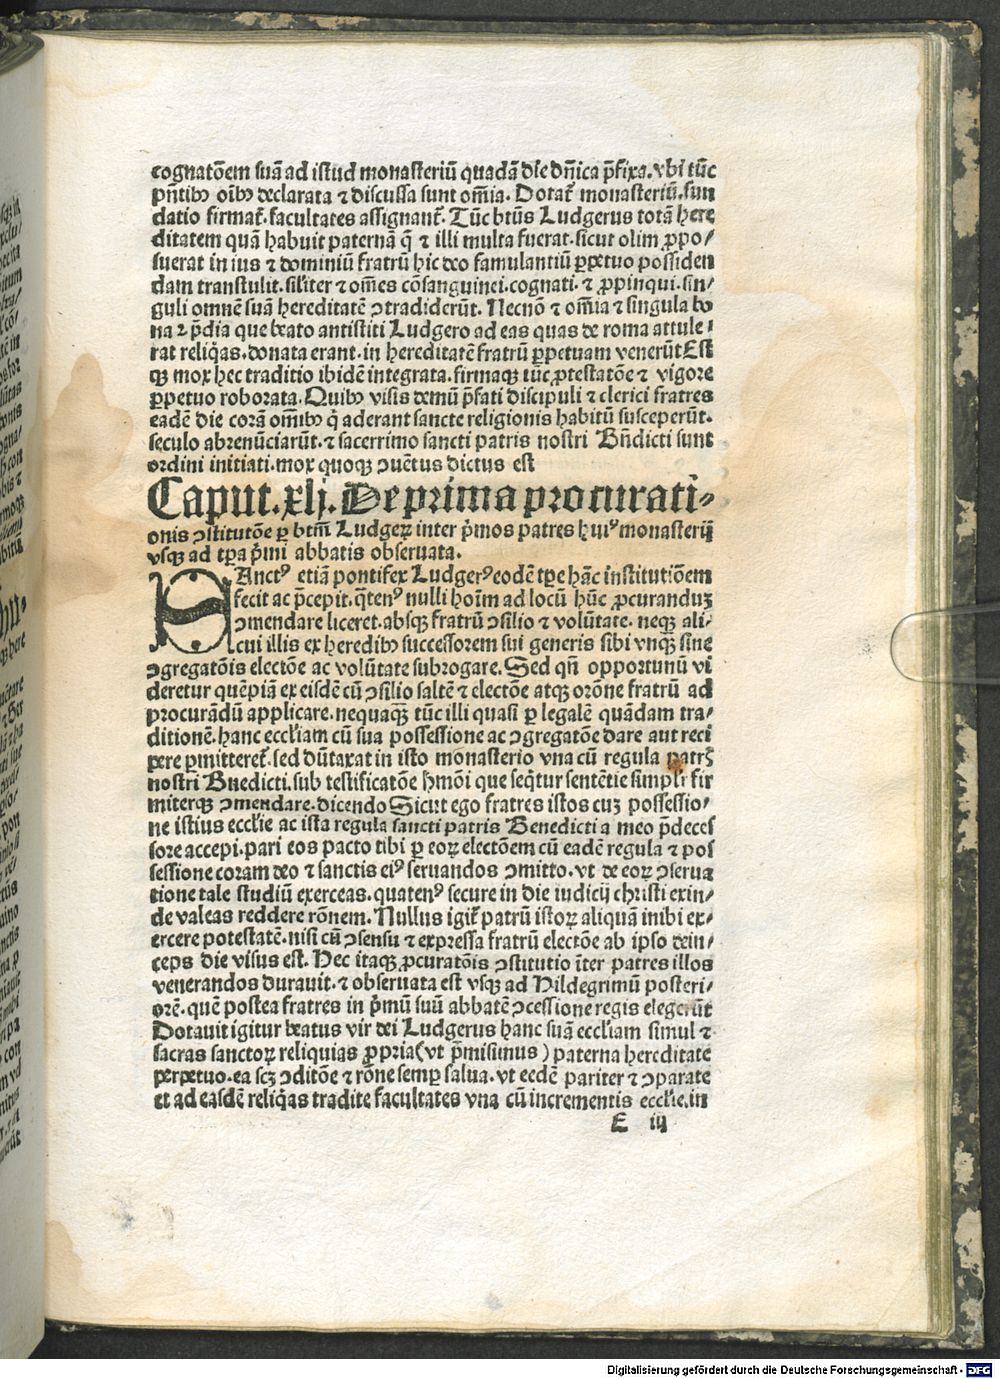 cognatōem suā ad istud monasteriū quadā die dn̄ica p̄fixa. vbi tūc
pn̄tibꝰ oībꝰ declarata ⁊ discussa sunt om̄ia. Dotat᷑ monasteriū. fun
datio firmat᷑. facultates assignant᷑. Tūc btūs Ludgerus totā here
ditatem quā habuit paternā q̄ ⁊ illi multa fuerat. sicut olim ꝓpo/
suerat in ius ⁊ dominiū fratrū hic deo famulantiū ꝑpetuo possiden
dam transtulit. sil̄iter ⁊ om̄es cōsanguinei. cognati. ⁊ ꝓpinqui. sin/
guli omnē suā hereditatē ꝯtradiderūt. Necnō ⁊ om̄ia ⁊ singula bo
na ⁊ p̄dia que beato antistiti Ludgero ad eas quas de roma attule/
rat reliq̄as. donata erant. in hereditatē fratrū ꝑpetuam venerūt Est
qꝫ mox hec traditio ibidē integrata. firmaqꝫ tūc ꝓtestatōe ⁊ vigore
ꝑpetuo roborata. Quibꝰ visis demū p̄fati discipuli ⁊ clerici fratres
eadē die corā om̄ibꝰ q̇ aderant sancte religionis habitū susceperūt.
seculo abrenūciarūt. ⁊ sacerrimo sancti patris nostri Bn̄dicti sunt
ordini initiati. mox quoqꝫ ꝯuētus dictus est
Caput. xlj. De prima procurati-
onis ꝯstitutōe ꝑ btm̄ Ludgeꝝ inter p̄mos patres huiꝰ monasterij
vsqꝫ ad tꝑa p̄mi abbatis obseruata.
SAnctꝰ etiā pontifex Ludgerꝰ eodē tꝑe hāc institutiōem
fecit ac p̄cepit. q̄tenꝰ nulli hoīm ad locū hūc ꝓcuranduꝫ
ꝯmendare liceret. absqꝫ fratrū ꝯsilio ⁊ volūtate. neqꝫ ali/
cui illis ex heredibꝰ successorem sui generis sibi vnqꝫ sine
ꝯgregatōis electōe ac volūtate subrogare. Sed qn̄ opportunū vi
deretur quēpiā ex eisdē cū ꝯsilio saltē ⁊ electōe atqꝫ orōne fratrū ad
procurādū applicare. nequaqꝫ tūc illi quasi ꝑ legalē quādam tra/
ditionē. hanc eccl̄iam cū sua possessione ac ꝯgregatōe dare aut reci
pere ꝑmitteret᷑. sed dūtaxat in isto monasterio vna cū regula patrꝭ
nostri Bn̄edicti. sub testificatōe hm̄oi que seq̄tur sentētie simpl̄r fir
miterqꝫ ꝯmendare. dicendo Sicut ego fratres istos cuꝫ possessio/
ne istius eccl̄ie ac ista regula sancti patris Benedicti a meo p̄deces
sore accepi. pari eos pacto tibi ꝑ eoꝝ electōem cū eadē regula ⁊ pos
sessione coram deo ⁊ sanctis eiꝰ seruandos ꝯmitto. vt de eoꝝ ꝯserua
tione tale studiū exerceas. quatenꝰ secure in die iudicij christi exin/
de valeas reddere rōnem. Nullus igit᷑ patrū istoꝝ aliquā inibi ex/
ercere potestatē. nisi cū ꝯsensu ⁊ expressa fratrū electōe ab ipso dein/
ceps die visus est. Hec itaqꝫ ꝓcuratōis ꝯstitutio īter patres illos
venerandos durauit. ⁊ obseruata est vsqꝫ ad Hildegrimū posteri/
orē. quē postea fratres in p̄mū suū abbatē ꝯcessione regis elegerūt
Dotauit igitur beatus vir dei Ludgerus hanc suā eccl̄iam simul ⁊
sacras sanctoꝝ reliquias ꝓpria (vt p̄misimus) paterna hereditate
perpetuo. ea scꝫ ꝯditōe ⁊ rōne semꝑ salua. vt eedē pariter ⁊ ꝯparate
et ad easdē reliq̄as tradite facultates vna cū incrementis eccl̄ie. in
E iij
Digitalisierung gefördert durch die Deutsche Forschungsgemeinschaft - DFG